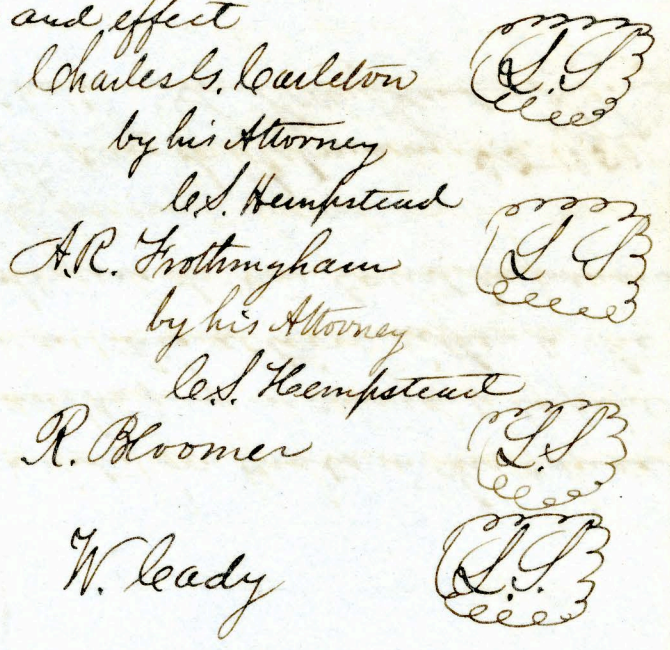 and effect
Charles G. Carleton L.S
by his Attorney
C.S. Hempstead
A.R. Frothingham L S
by his Attorney
C.S. Hempstead
R. Bloomer L.S
W. Cady L.S.